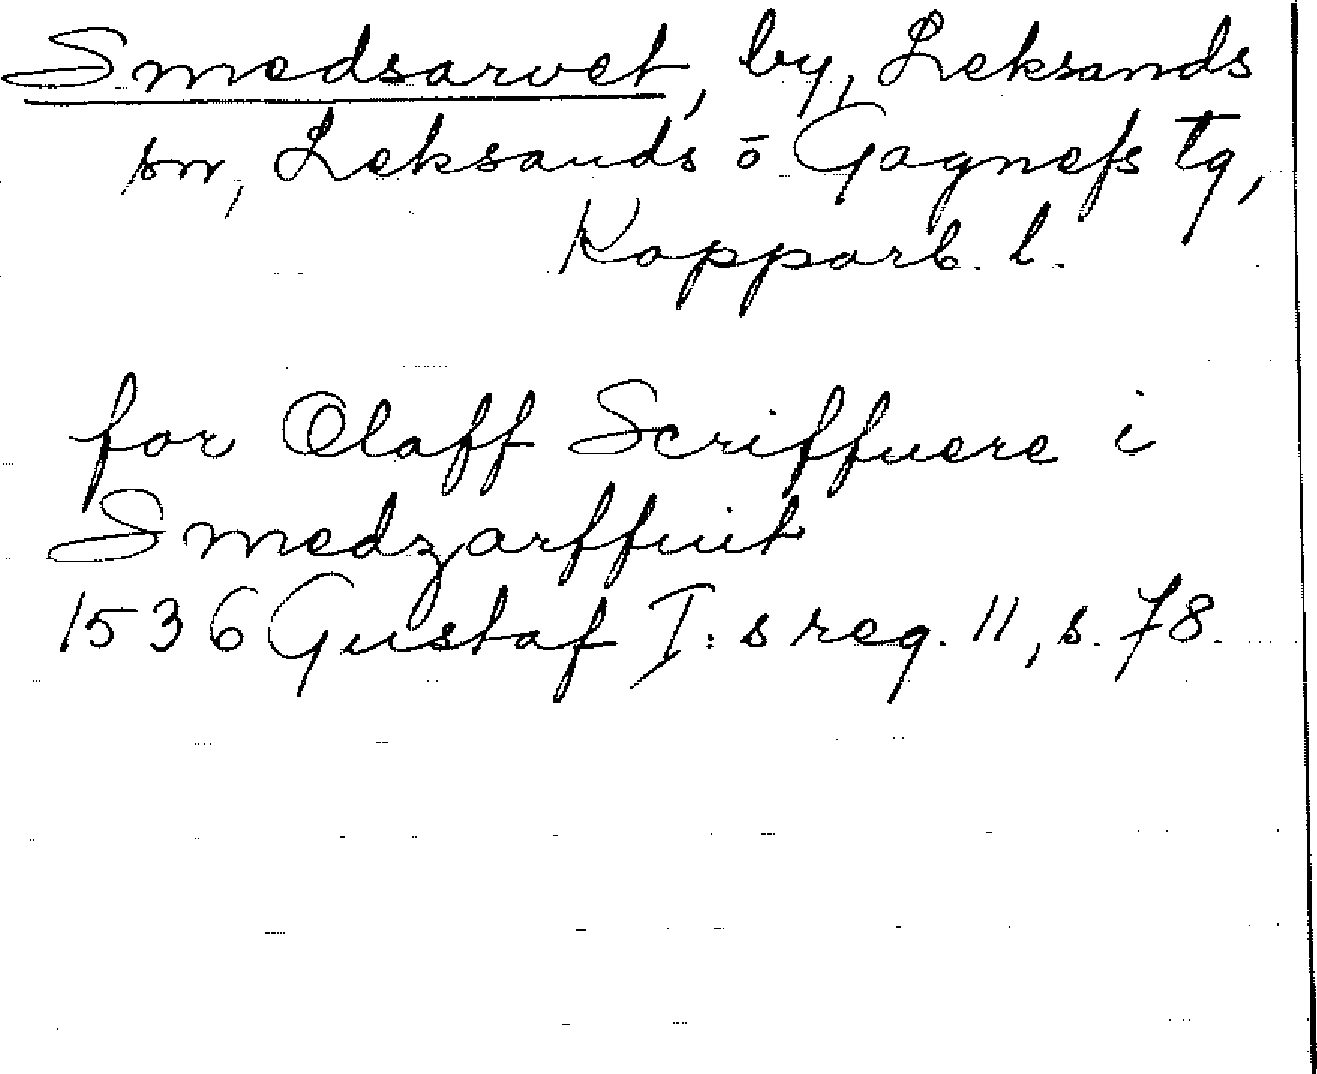 Smedsarvet, by, Leksands
sn, Leksands o Gagnefs tg,
Kopparb. l.
for Olaff Scriffuere i
Smedzarffuit
1536 Gustaf I:s reg. 11, s. 78.